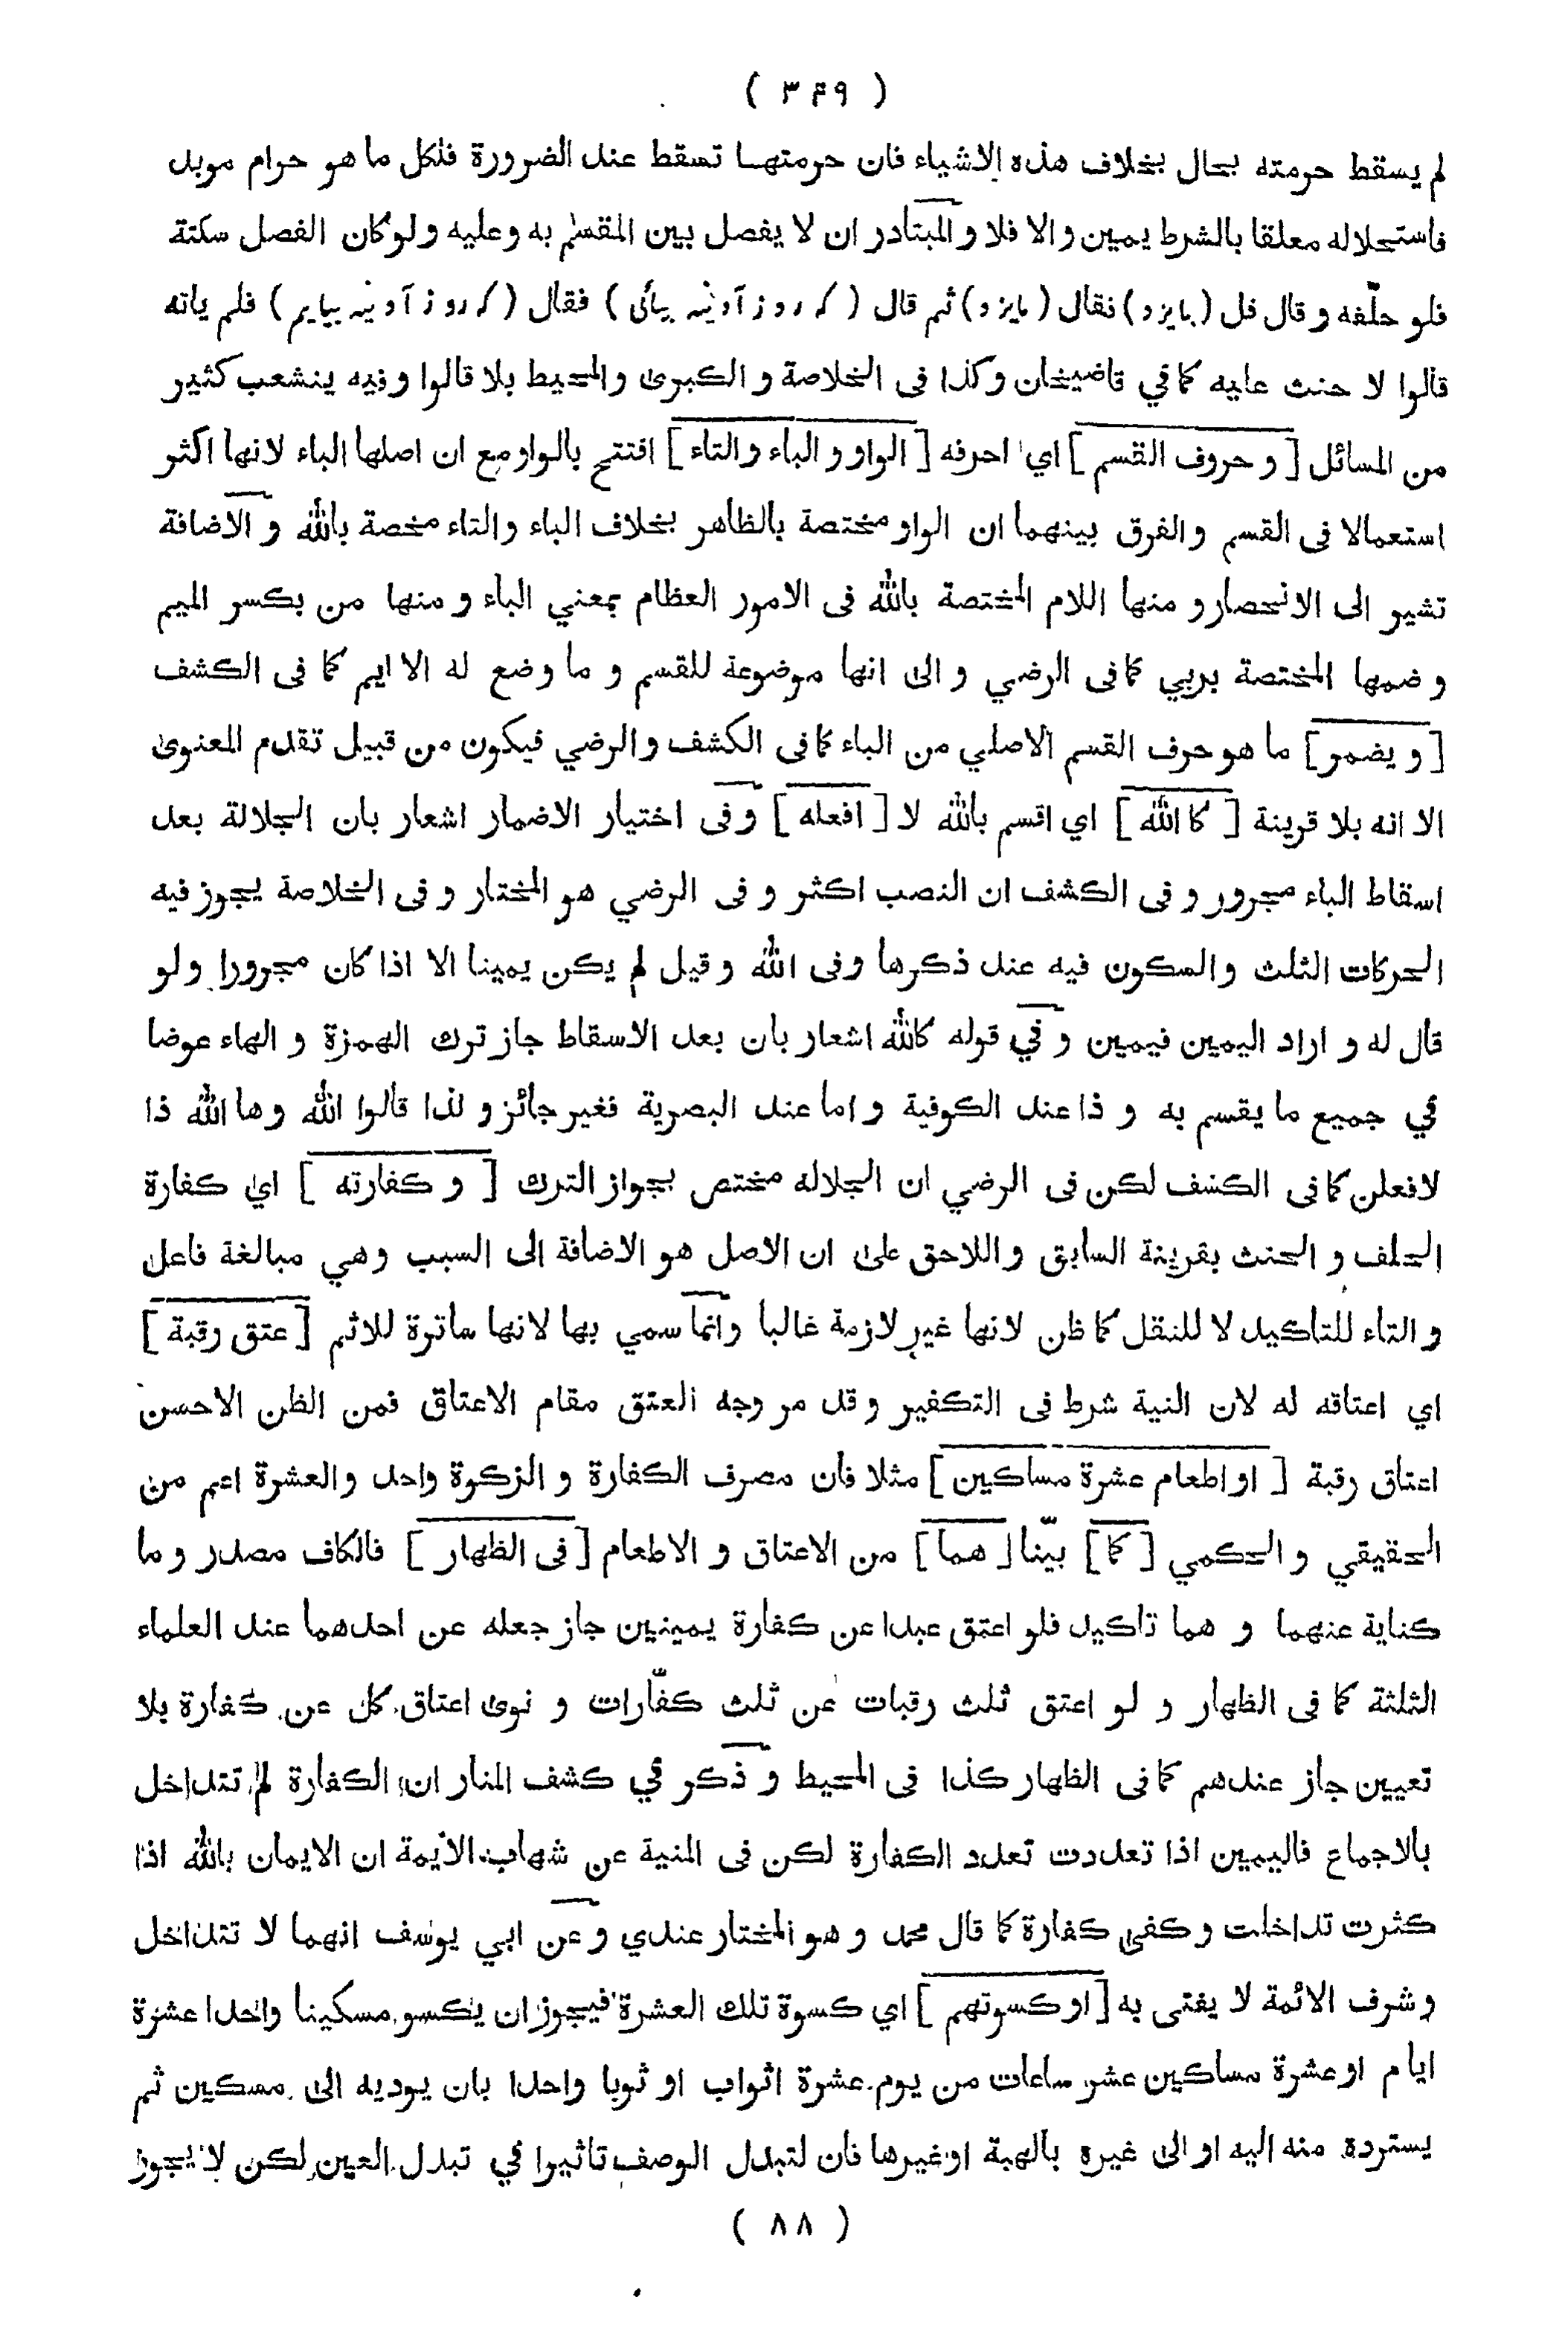 ( ٣٤٩ )
لم يسقط حرمته بحال بخلاف هذه الاشياء فان حرمتهـا تسقط عند الضرورة فلكل ما هو حرام موبد
فاستحلاله معلقا بالشرط يمين والا فلا و المبتأدر ان لا يفصل بين المقسم به وعليه ولوكان الفصل سكتة
فلو حلّفه وقال قل ( بايزد ) فقال ( بايزد ) ثم قال ( كه روز آدينه بيائى ) فقال ( كه روز آدينه بيايم ) فلم ياته
قالوا لا حنث عليه كما في قاضيخان وكذا فى الخلاصة و الكبرى والمحيط بلا قالوا وفيه ينشعب كثير
من المسائل [ و حروف القسم ] اي احرفه [ الواو و الباء والتاء ] افتتح بالواو مع ان اصلها الباء لانها اكثر
استعمالا فى القسم والفرق بينهما ان الواو مختصة بالظاهر بخلاف الباء والتاء مخصة بالله و الاضافة
تشير الى الانحصار و منها اللام المختصة بالله فى الامور العظام بمعني الباء و منها من بكسر الميم
وضمها المختصة بربي كما فى الرضي و الى انها موضوعة للقسم و ما وضع له الا ايم كما فى الكشف
[ و يضمر ] ما هو حرف القسم الاصلي من الباء كما فى الكشف والرضي فيكون من قبيل تقدم المعنوى
الا انه بلا قرينة [ كا الله ] اي اقسم بالله لا [ افعله ] وفى اختيار الاضمار اشعار بان الجلالة بعد
اسقاط الباء مجرور و فى الكشف ان النصب اكثر و فى الرضي هو المختار و فى الخلاصة يجوز فيه
الحركات الثلث والسكون فيه عند ذكرها وفى الله وقيل لم يكن يمينا الا اذا كان مجرورا ولو
قال له و اراد اليمين فيمين و في قوله كالله اشعار بان بعد الاسقاط جاز ترك الهمزة و الهاء عوضا
في جميع ما يقسم به و ذا عند الكوفية و اما عند البصرية فغير جائز و لذا قالوا الله وها الله ذا
لافعلن كما فى الكشف لكن فى الرضي ان الجلاله مختص بجواز الترك [ و كفارته ] اي كفارة
الحلف و الحنث بقرينة السابق واللاحق على ان الاصل هو الاضافة الى السبب وهي مبالغة فاعل
و التاء للتاكيد لا للنقل كما ظن لانها غير لازمة غالبا وانما سمي بها لانها ساترة للاثم [ عتق رقبة ]
اي اعتاقه له لان النية شرط فى التكفير و قد مر وجه العتق مقام الاعتاق فمن الظن الاحسن
اعتاق رقبة [ او اطعام عشرة مساكين ] مثلا فان مصرف الكفارة و الزكوة واحد والعشرة اعم من
الحقيقي و الحكمي [ كما ] بيّنا [ هما ] من الاعتاق و الاطعام [ فى الظهار ] فالكاف مصدر و ما
كناية عنهما و هما تاكيد فلو اعتق عبدا عن كفارة يمينين جاز جعله عن احدهما عند العلماء
الثلثة كما فى الظهار و لو اعتق ثلث رقبات عن ثلث كفّارات و نوى اعتاق كل عن كفارة بلا
تعيين جاز عندهم كما فى الظهار كذا فى المحيط و ذكر في كشف المنار ان الكفارة لم تتداخل
بالاجماع فاليمين اذا تعددت تعدد الكفارة لكن فى المنية عن شهاب الائمة ان الايمان بالله اذا
كثرت تداخلت وكفى كفارة كما قال محمد و هو المختار عندي و عن ابي يوسف انهما لا تتداخل
و شرف الائمة لا يفتى به [ او كسوتهم ] اي كسوة تلك العشرة فيجوز ان يكسو مسكينا واحدا عشرة
ايام او عشرة مساكين عشر ساعات من يوم عشرة اثواب او ثوبا واحدا بان يوديه الى مسكين ثم
يسترده منه اليه او الى غيره بالهبة او غيرها فان لتبدل الوصف تاثيرا في تبدل العين لكن لا يجوز
( ٨٨ )